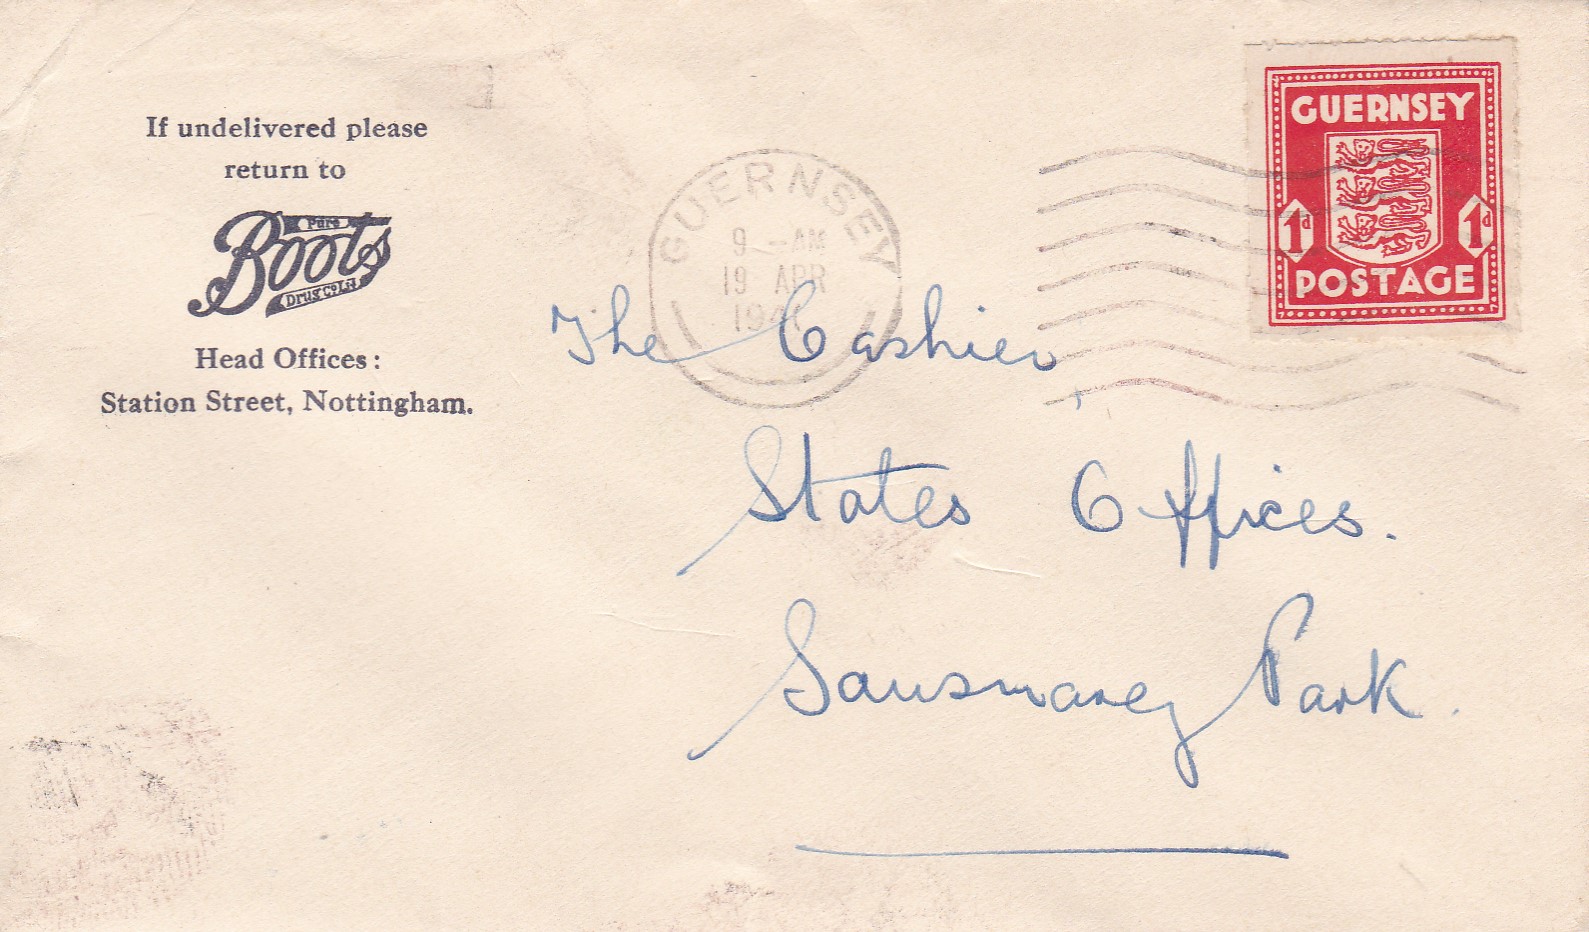 If undelivered please
return to
Pure
Boots
Drug Co Ltd
Head Offices:
Station Street, Nottingham.
GUERNSEY
9 - AM
19 APR
GUERNSEY
1d 1d
POSTAGE
The Cashier,
States Offices.
Sausmarez Park.